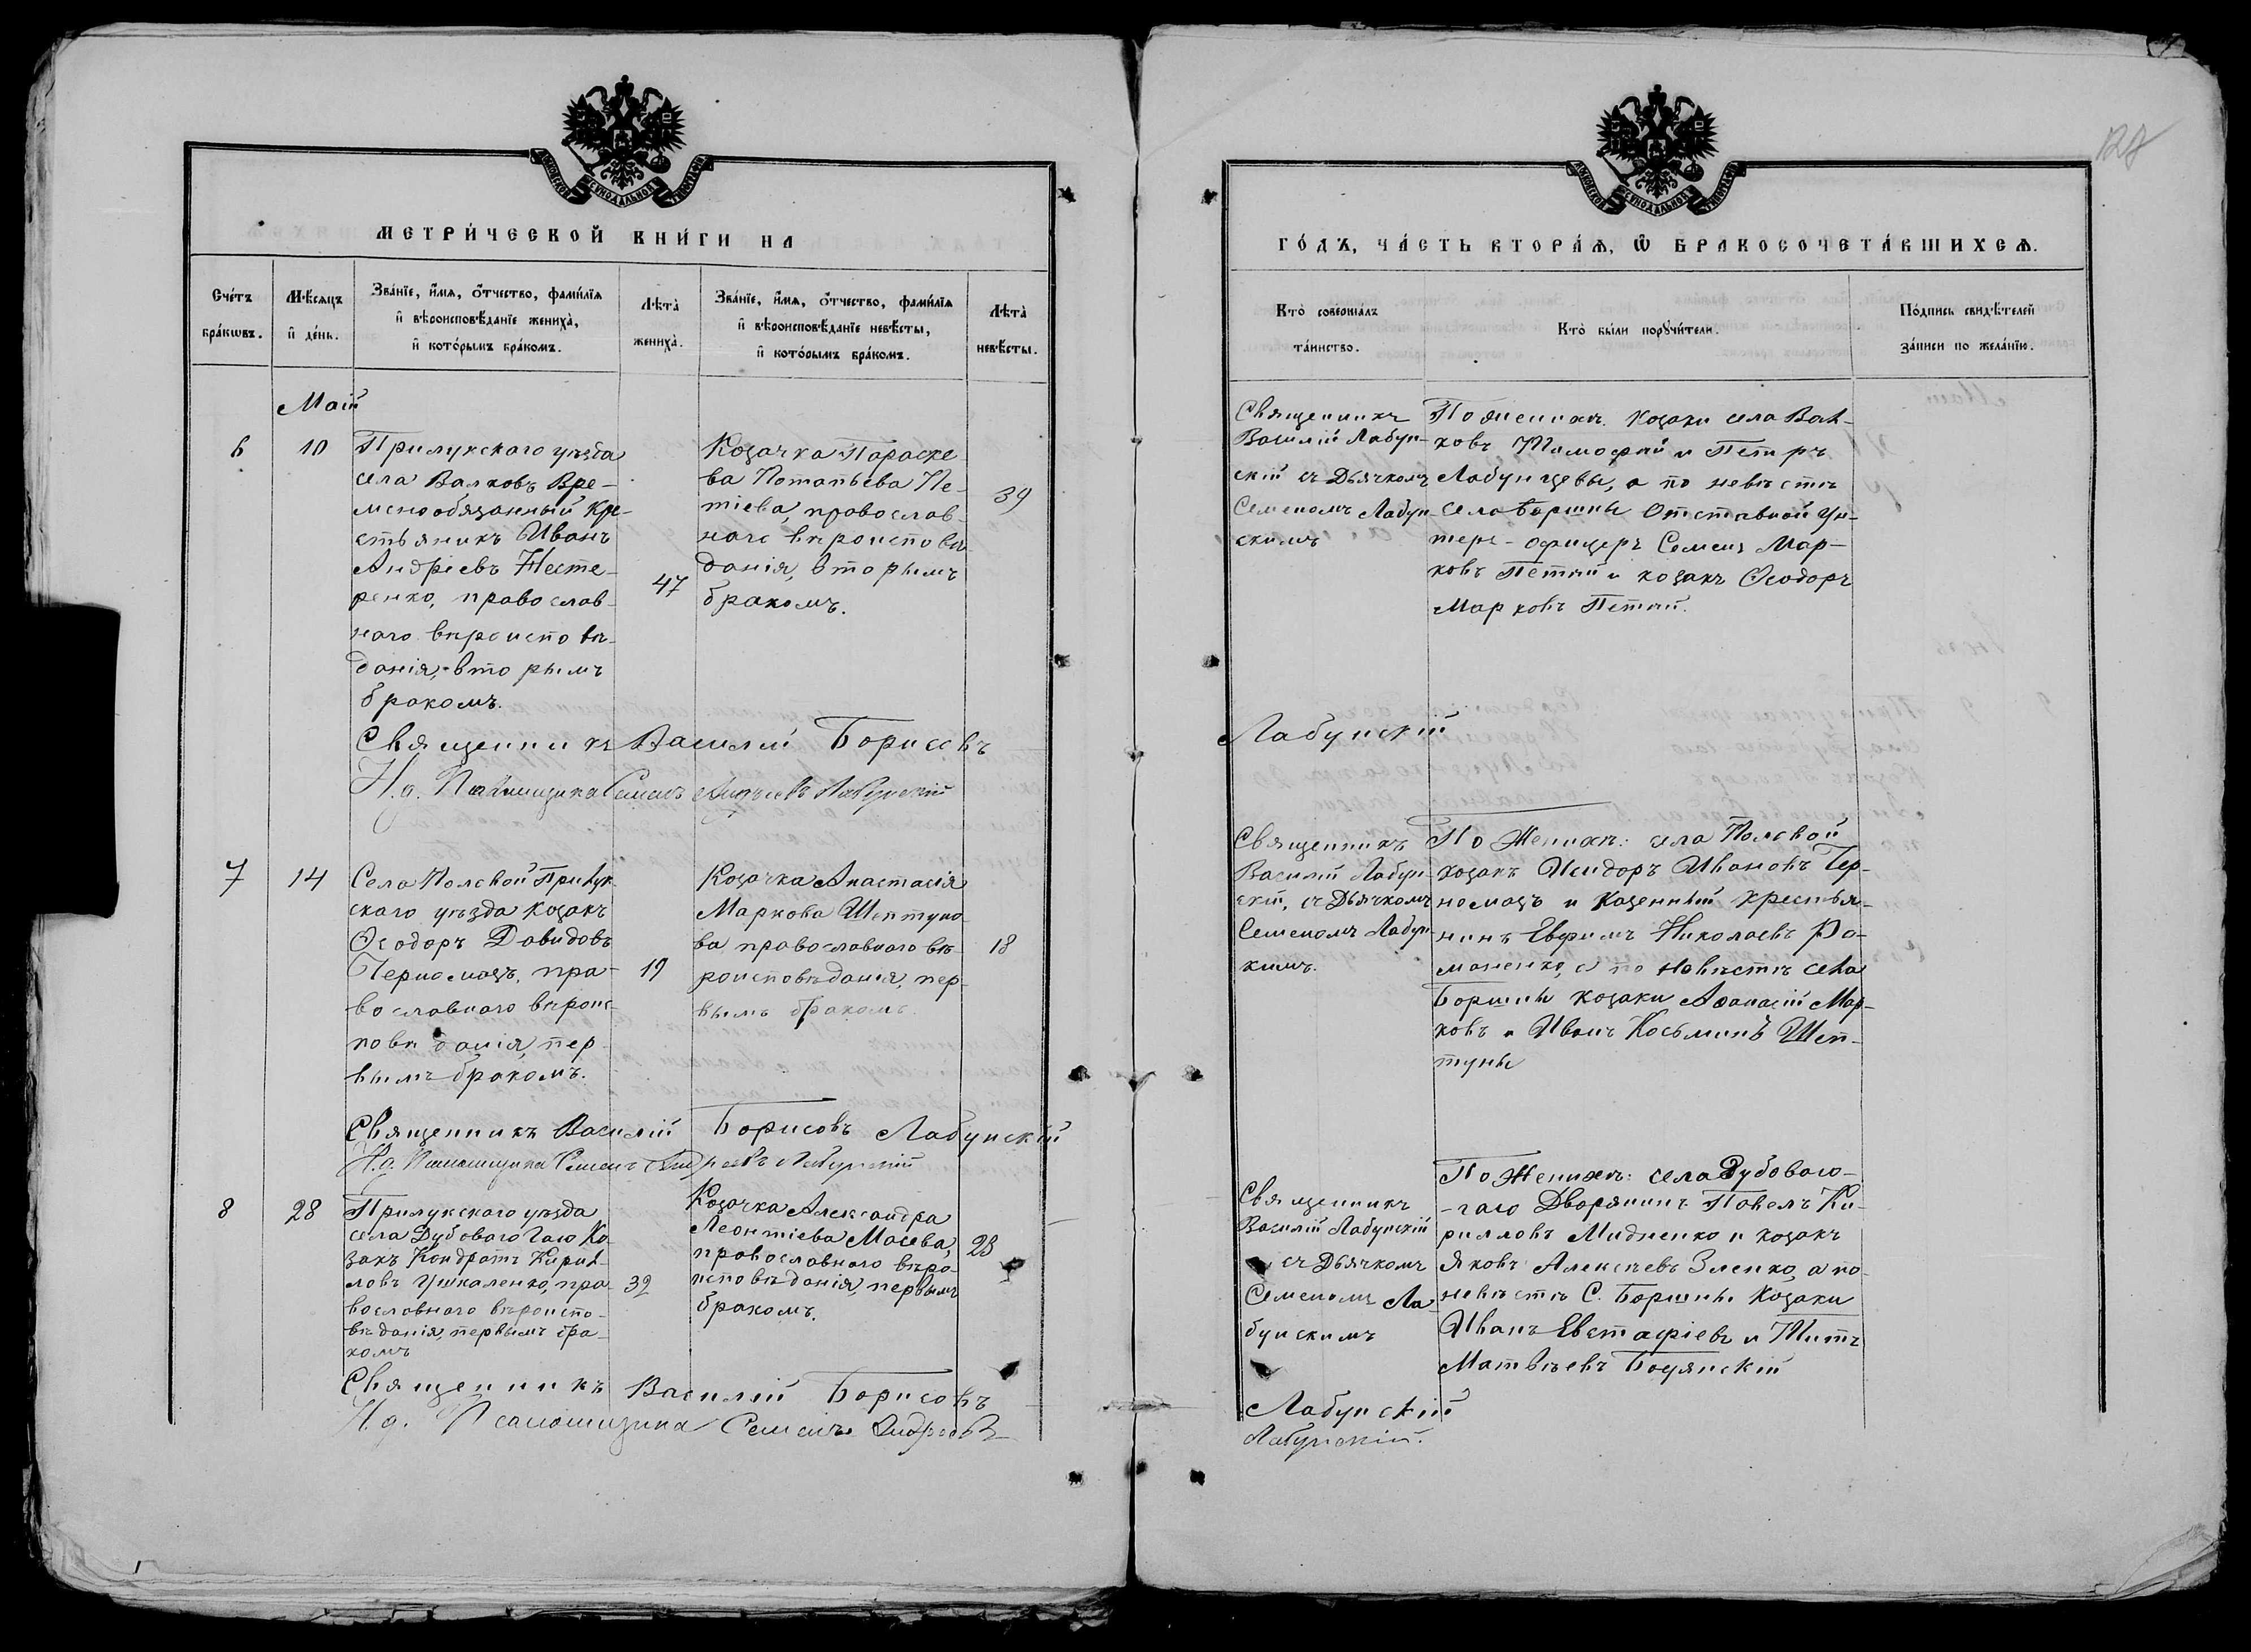 МОСКОВСКОЙ СѴНОДАЛЬНОЙ ТИПОГРАФІИ
МЕТРИ́ЧЕСКОЙ КНИ́ГИ НА
Сче́тъ бра́кѡвъ.
Мѣ́сѧцъ и҆ де́нь.
Зва́нїе, и҆́мѧ, ѻ҆́тчество, фами́лїѧ
и҆ вѣроисповѣ́данїе жениха̀,
и҆ кото́рымъ бра́комъ.
Лѣта̀ жениха̀.
Зва́нїе, и҆́мѧ, ѻ҆́тчество, фами́лїѧ
и҆ вѣроисповѣ́данїе невѣ́сты,
и҆ кото́рымъ бра́комъ.
Лѣта̀ невѣ́сты.
Май
6
10
Прилукскаго уѣзда
села Валковъ Вре-
менообязанный Кре-
стьянинъ Иванъ
Андріевъ Несте-
ренко, православ-
наго вѣроисповѣ-
данія, вторымъ
бракомъ.
47
Козачка Параске-
ва Потапьева Пе-
тіева, православ-
наго вѣроисповѣ-
данія, вторымъ
бракомъ.
39
Священникъ Василій Борисовъ
И.д. Псаломщика Семенъ Андреевъ Лабунскій
7
14
Села Полевой Прилук-
скаго уѣзда козакъ
Ѳеодоръ Давидовъ
Черномазъ, пра-
вославнаго вѣроис-
повѣданія, пер-
вымъ бракомъ.
19
Козачка Анастасія
Маркова Шептуно-
ва православнаго вѣ-
роисповѣданія, пер-
вымъ бракомъ.
18
Священникъ Василій Борисовъ Лабунскій
И.д. Псаломщика Семенъ Андреевъ Лабунскій
8
28
Прилукскаго уѣзда
села Дубоваго Гаю Ко-
закъ Кондратъ Кирил-
ловъ Ушкаленко, пра-
вославнаго вѣроиспо-
вѣданія, первымъ бра-
комъ
32
Козачка Александра
Леонтіева Мосева,
православнаго вѣро-
исповѣданія, первымъ
бракомъ.
23
Священникъ Василій Борисовъ
И.д. Псаломщика Семенъ Андреевъ
МОСКОВСКОЙ СѴНОДАЛЬНОЙ ТИПОГРАФІИ
ГО́ДЪ, ЧА́СТЬ ВТОРА́Ѧ, Ѡ҆ БРАКОСОЧЕТА́ВШИХСѦ.
Кто̀ соверша́лъ
та́инство.
Кто̀ бы́ли порꙋчи́тели.
По́дпись свидѣ́телей
за́писи по жела́нїю.
Священникъ
Василій Лабун-
скій съ Дьячкомъ
Семеномъ Лабун-
скимъ
По женихѣ: козаки села Вал-
ковъ Тимофей и Петръ
Лабунцевы, а по невѣстѣ
села Боршны Отставной Ун-
теръ-офицеръ Семенъ Мар-
ковъ Петій и козакъ Ѳеодоръ
Марковъ Петій.
Лабунскій
Священникъ
Василій Лабун-
скій, съ Дьячкомъ
Семеномъ Лабун-
кимъ.
По Женихѣ: села Полевой
козакъ Исидоръ Ивановъ Чер-
номазъ и Казенный крестья-
нинъ Ефимъ Николаевъ Ро-
маненко, а по невѣстѣ села
Боршны козаки Аѳанасій Мар-
ковъ и Иванъ Косьминъ Шеп-
туны
Священникъ
Василій Лабунскій
съ Дьячкомъ
Семеномъ Ла-
бунскимъ
По Женихѣ: села Дубоваго-
-гаю Дворянинъ Павелъ Ки-
рилловъ Мидненко и козакъ
Яковъ Алексѣевъ Зленко, а по
невѣстѣ С. Боршны Козаки
Иванъ Евстафіевъ и Титъ
Матвѣевъ Боцянскій
Лабунскій
Лабунскій.